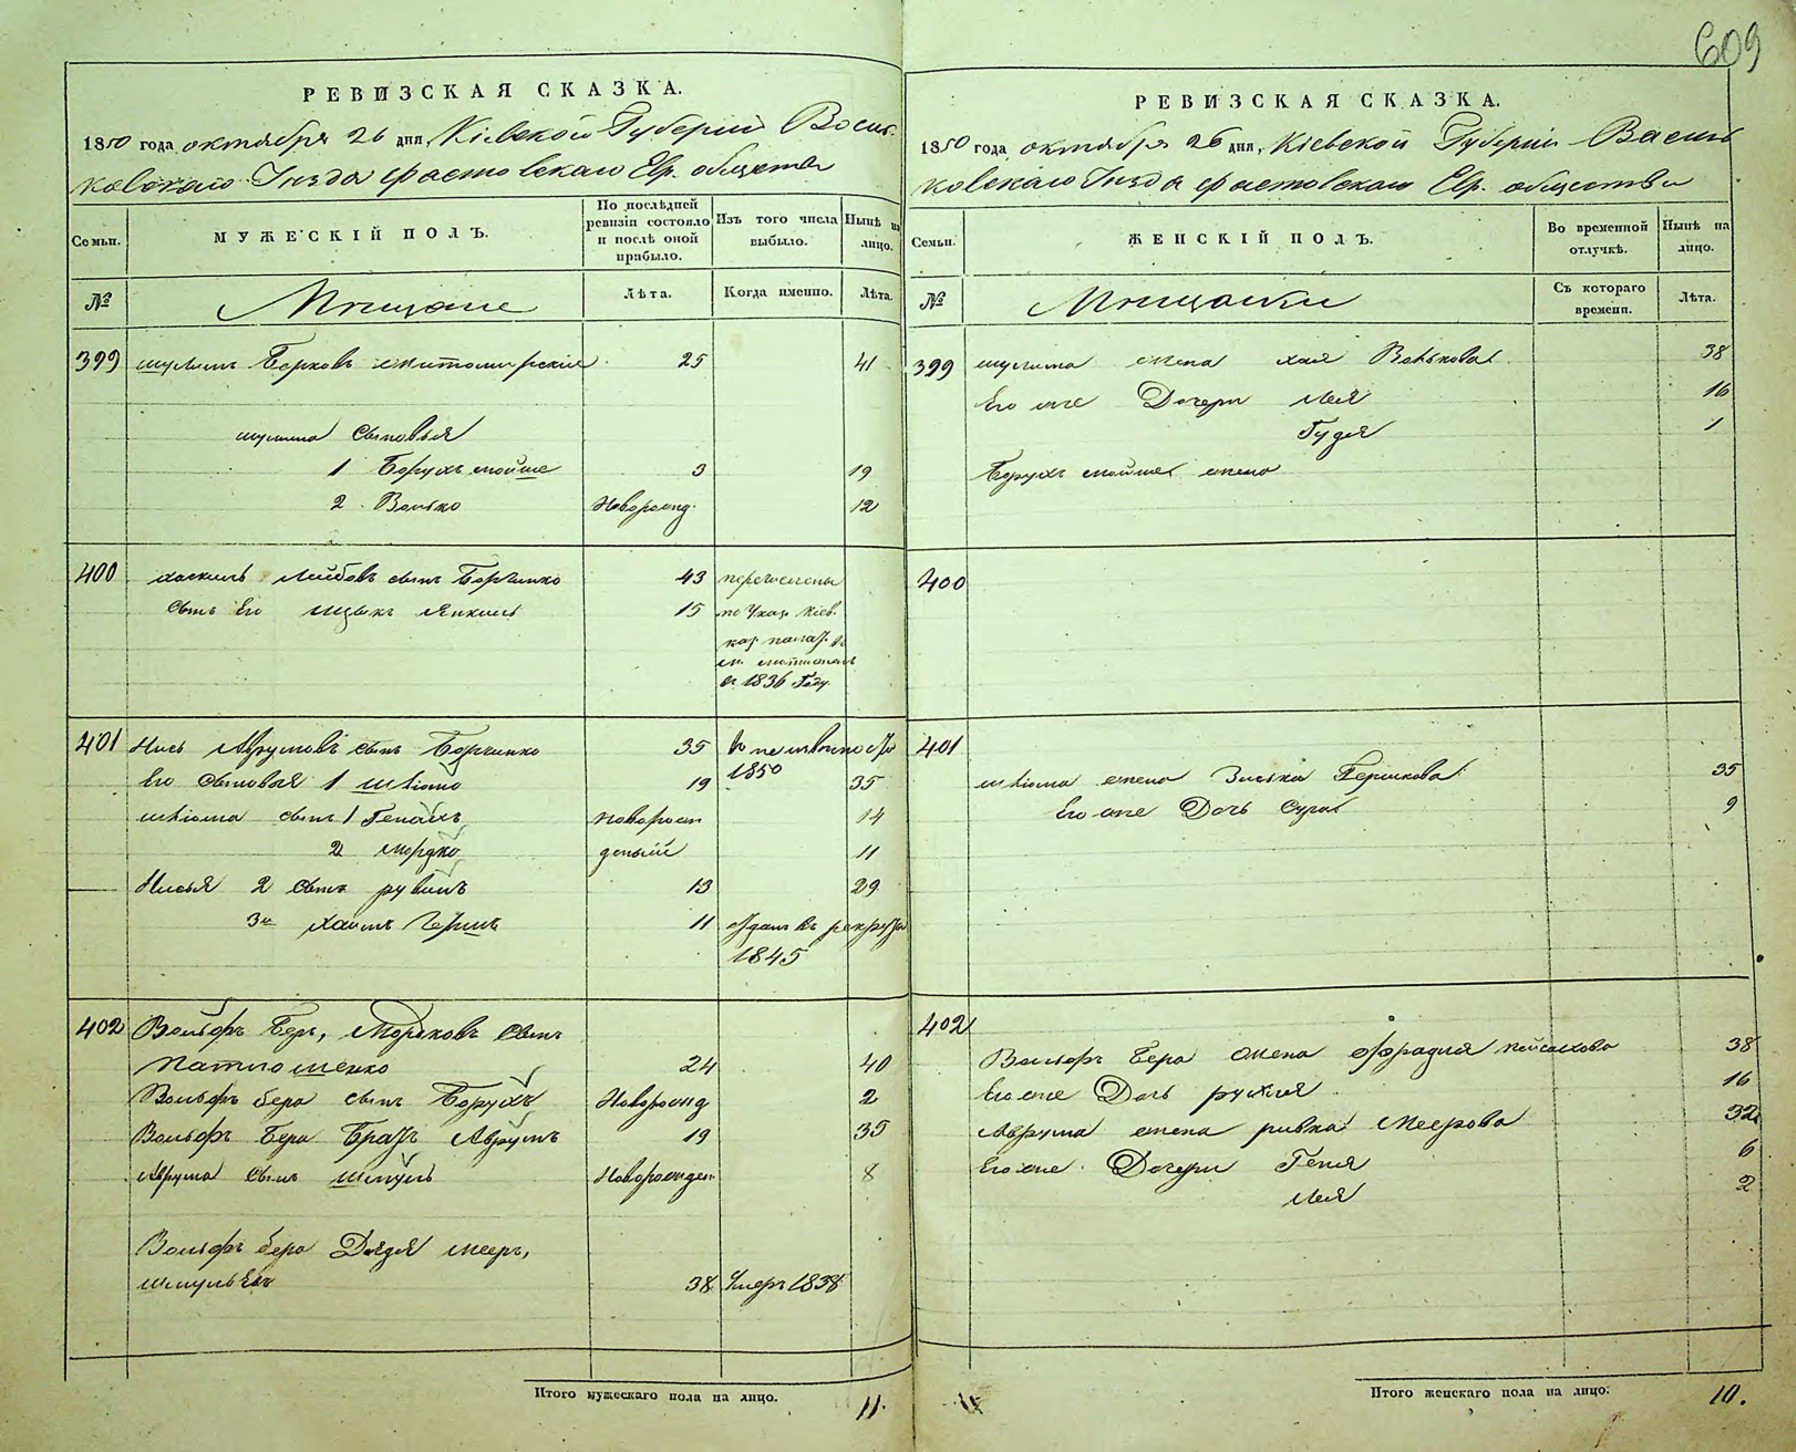 609
РЕВИЗСКАЯ СКАЗКА.
1850 года октября 26 дня, Кіевской Губерніи Василь-
ковскаго Уѣзда Фастовскаго Евр. общества
Семьи.
МУЖЕСКІЙ ПОЛЪ.
По послѣдней ревизіи состояло и послѣ оной прибыло.
Изъ того числа выбыло.
Нынѣ на лицо.
№
Мѣщане
Лѣта.
Когда именно.
Лѣта.
399 Шулимъ Берковъ Житомирскій 25 41
Шулима Сыновья
1 Борухъ Мойше 3 19
2 Волько Новорожд. 12
400 Хаскель Лейбовъ сынъ Борченко 43 перечислены
Сынъ Его Ицыкъ Янкель 15 по Указ. Кіев.
каз. палат.
въ 1836 Году
401 Нись Аврумовъ сынъ Борченко 35 въ неизвѣстно
Его Сыновья 1 Шліома 19 1850 35
Шліома сынъ 1 Генахъ Новорож 14
2 Мордко денный 11
Нисья 2 сынъ Рувинъ 13 29
3й Хаимъ Гершъ 11 отданъ въ рекруты
1845
402 Вольфъ Беръ, Мордковъ сынъ
Матюшенко 24 40
Вольфъ Бера сынъ Борухъ Новорожд 2
Вольфъ Бера Братъ Аврумъ 19 35
Аврума сынъ Шмуль Новорожден 8
Вольфъ Бера Дядя Мееръ,
Шмулевъ 38 Умеръ 1838
Итого мужескаго пола на лицо. 11.
РЕВИЗСКАЯ СКАЗКА.
1850 года октября 26 дня, Кіевской Губерніи Василь
ковскаго Уѣзда Фастовскаго Евр. общества
Семьи.
ЖЕНСКІЙ ПОЛЪ.
Во временной отлучкѣ.
Нынѣ на лицо.
№
Мѣщанки
Съ котораго времени.
Лѣта.
399 Шулима жена Хая Волькова 38
Его же Дочери Лея 16
Гудя 1
Борухъ Мойше жена
400
401
Шліома жена Зиська Гершкова 35
Его же Дочь Сура 9
402
Вольфъ Бера жена Фрадля Пейсахова 38
Его же Дочь Рухля 16
Аврума жена Ривка Меерова 32
Его же Дочери Геня 6
Лея 2
Итого женскаго пола на лицо. 10.